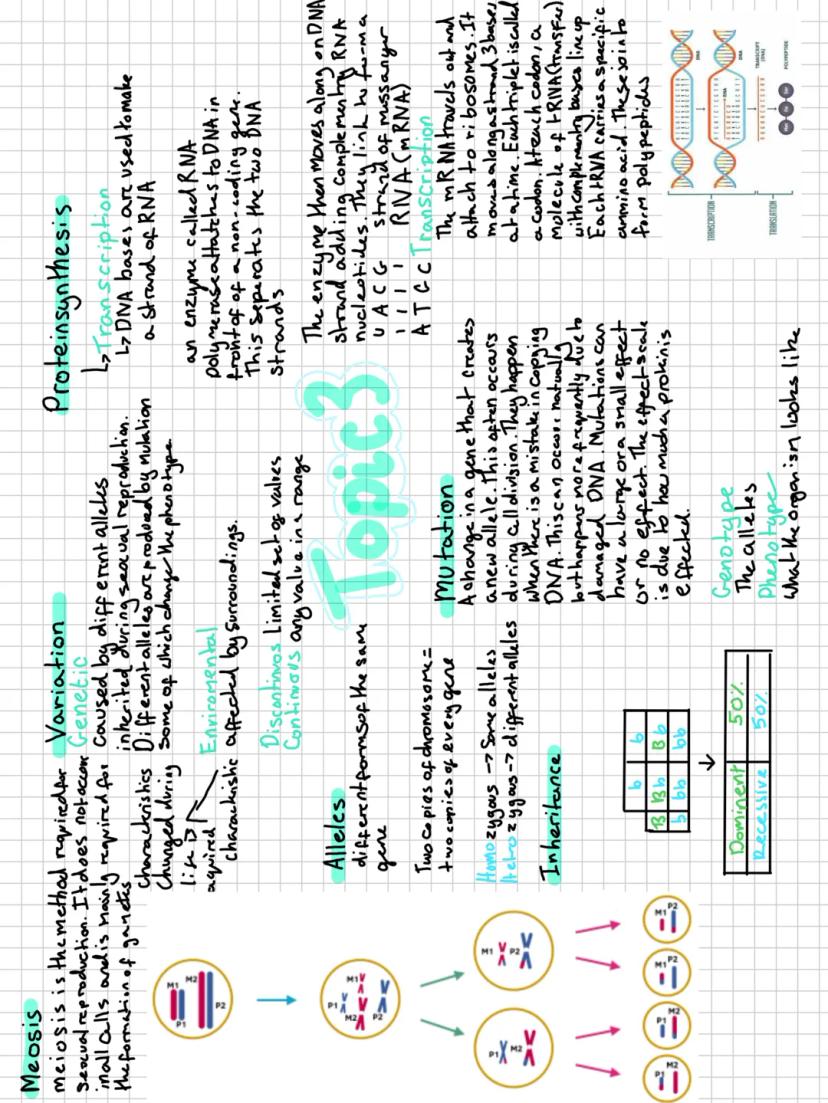 Meosis
meiosis is the method required for
sexual reproduction. It does not accor
in all cells and is mainly required for
the formation of gametes
M1
P1
M2
P2
P1
M1
M2
P2
P1
M2
M1
P2
P1
M2
P1
M2
M1
P2
M1
P2
Variation
Genetic
caused by different alleles
inherited during sexual reproduction.
Different alleles are produced by mutation
some of which change the phenotype
characteristics
changed during
life
aquired
characteristic
Enviromental
affected by surroundings.
Discontinuos Limited set of values
Continuous any value in a range
Alleles
different forms of the same
gene
Two copies of chromosome =
two copies of every gene
Homozygous -> Same alleles
Hetrozygous -> different alleles
Inheritance
b b
B Bb Bb
b bb bb
Dominent 50%
Recessive 50%
Topic 3
Protein synthesis
↳ Transcription
↳ DNA bases are used to make
a strand of RNA
an enzyme called RNA
polymerase attatches to DNA in
front of of a non-coding gene.
This seperates the two DNA
strands
The enzyme then moves along on DNA
strand adding complementry RNA
nucleotides. They link to form a
U A C G strand of mussanger
RNA (mRNA)
A T G C
Transcription
The mRNA travels out and
attach to ribosomes. It
moves along a strand 3 bases
at a time. Each triplet is called
a codon. At each codon, a
molecule of tRNA (transfer)
with complementry bases line up
Each tRNA carries a specific
ammino acid. These join to
form polypeptides
DNA
DNA
TRANSCRIPT
(RNA)
POLYPEPTIDE
TRANSCRIPTION
TRANSLATION
Mutation
A change in a gene that creates
a new allele. This often occurs
during cell division. They happen
when there is a mistake in copying
DNA. This can occur naturally
but happens more frequently due to
damaged DNA. Mutations can
have a large or a small effect
or no effect. The effect scale
is due to how much a protkin is
effected.
Genotype
The alleles
Phenotype
what the organism looks like